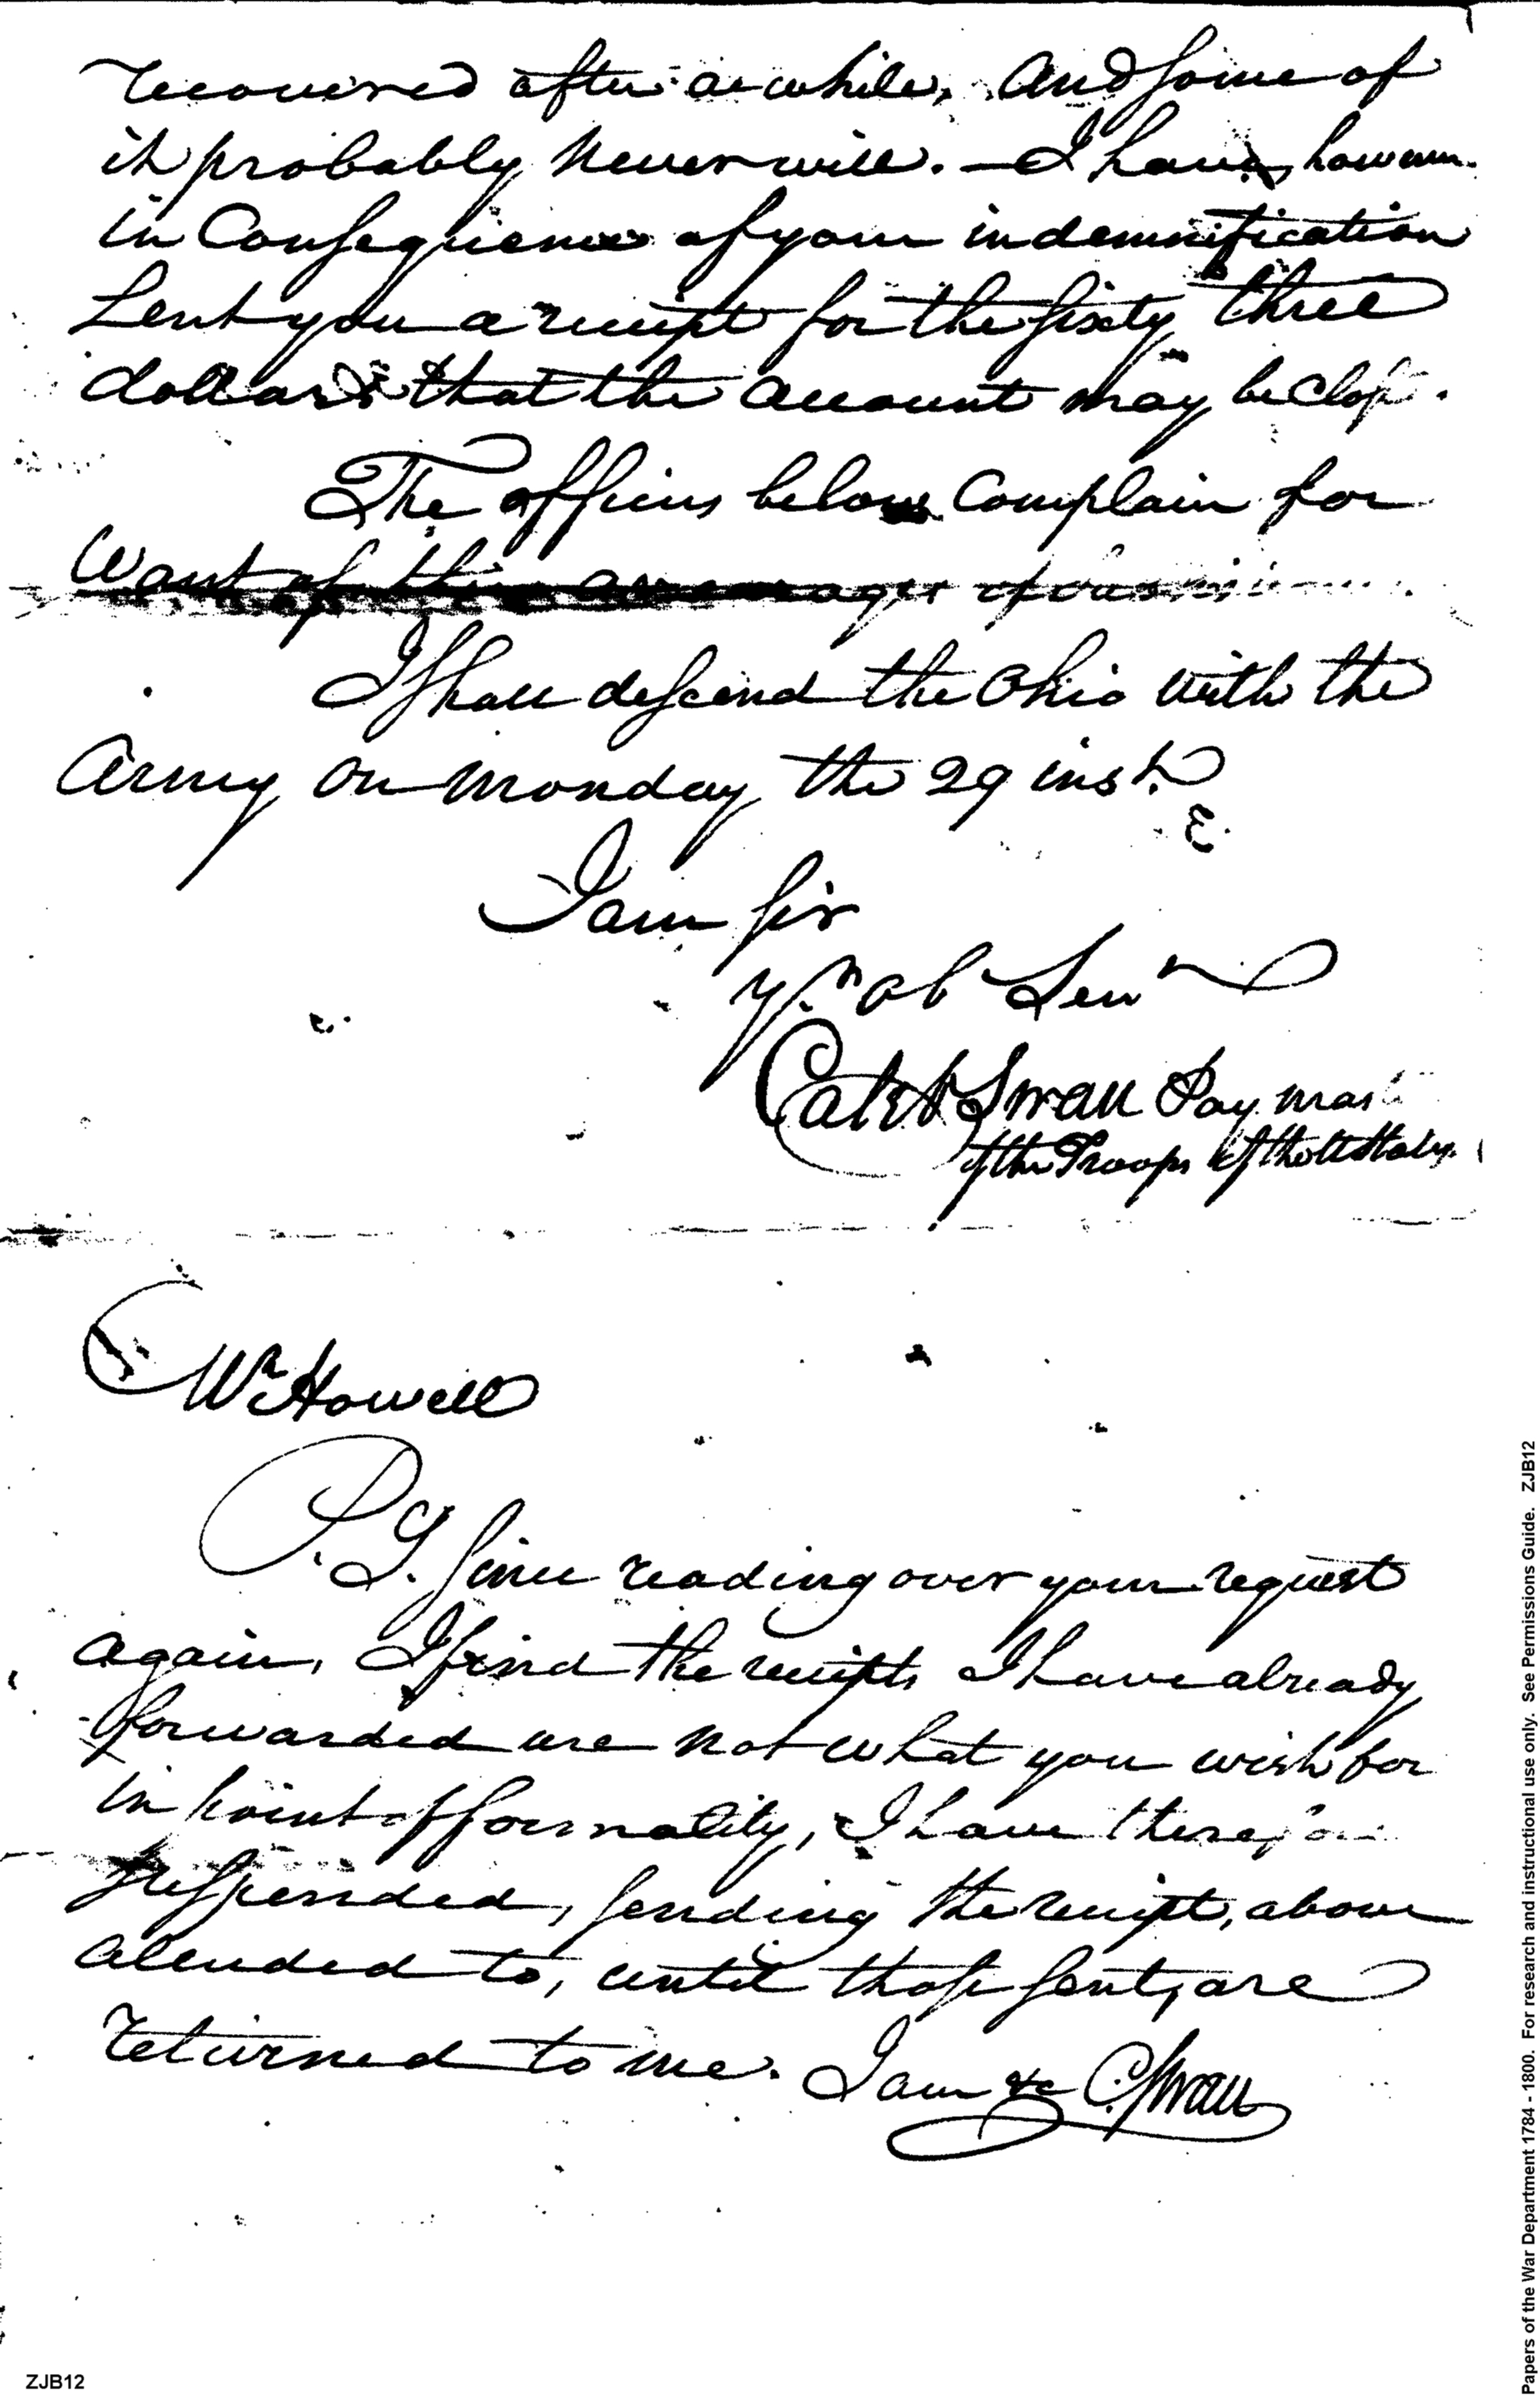 recovered after a while, And some of
it probably never will. — I have, however
in Consequence of your indemnification
sent you a receipt for the sixty three
dollars that the account may be close.
The officers below Complain for
Want of their arrearages of
I shall descend the Ohio with the
Army on monday the 29 inst.
I am sir
Yr. ob Serv
Caleb Swan Pay mas
of the Troops of the U States
Mr Howell
P.S. since reading over your request
again, I find the receipts I have already
forwarded are not what you wish for
in point of formality, I have therefore
suspended, sending the receipt, above
aluded to, until those sent, are
returned to me. I am &c C. Swan
ZJB12
Papers of the War Department 1784 - 1800. For research and instructional use only. See Permissions Guide. ZJB12